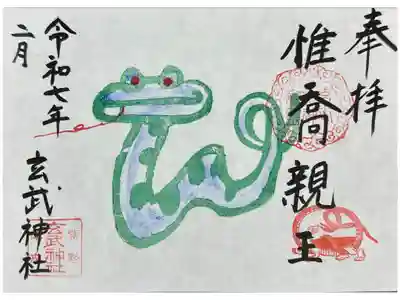 奉拝
惟喬親王
令和七年
二月
玄武神社
玄武神社